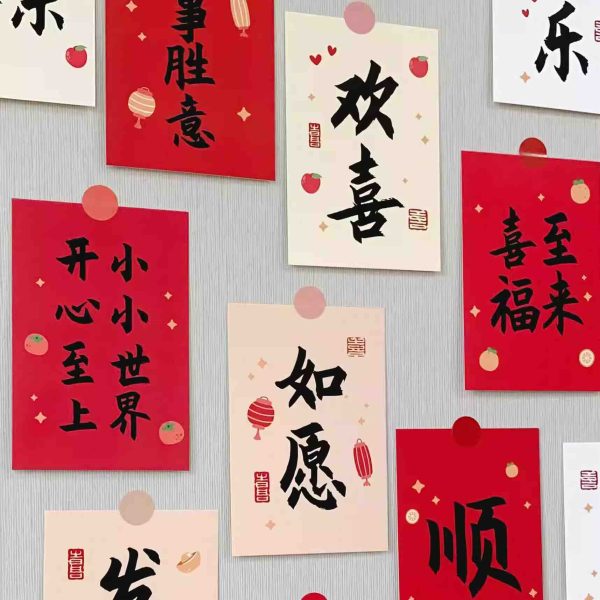 乐
事胜意
欢喜
乐
小小世界
开心至上
至来
喜福
如愿
喜
喜
喜
顺
发